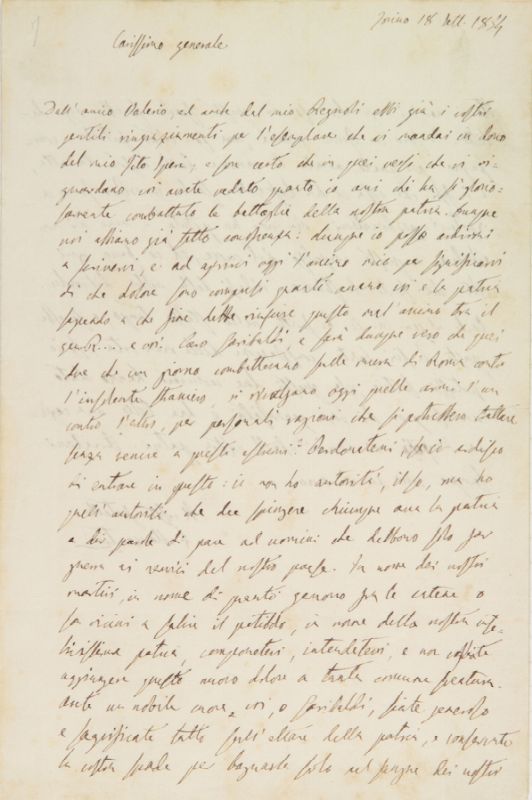 Torino 18 Sett. 1854
Carissimo generale
Dall'amico Valerio, ed anche dal mio Regnoli ebbi già i vostri
gentili ringraziamenti per l'esemplare che vi mandai in dono
del mio Tito Speri, e son certo che in quei versi che vi ri-
guardano voi avrete veduto quanto io ami chi ha sì glorio-
samente combattuto le battaglie della nostra patria. Dunque
noi abbiamo già fatto conoscenza: dunque io posso ardirmi
a scrivervi, e ad aprirvi oggi l'animo mio per significarvi
di che dolore sono compresi quanti amano voi e la patria
sapendo a che fine debba riuscire questo nell'animo tra il
gen. R.... e voi. Caro Garibaldi, e sarà dunque vero che quei
due che un giorno combatterono sulle mura di Roma contro
l'insolente straniero, si rivolgano oggi quelle armi l'un
contro l'altro, per personali ragioni che si potrebbero trattare
senza venire a questi estremi? Perdonatemi, se io ardisco
di entrare in questo: io non ho autorità, il so, ma ho
quell'autorità che dee spingere chiunque ama la patria
a dir parole di pace ad uomini che debbono solo far
guerra ai nemici del nostro paese. In nome dei nostri
martiri, in nome di quanti gemono fra le catene o
son vicini a salire il patibolo, in nome della nostra infe-
licissima patria, componetevi, intendetevi, e non vogliate
aggiungere questo nuovo dolore a tanta comune sventura.
Avete un nobile cuore voi, o Garibaldi, siate generoso
e sagrificate tutto sull'altare della patria, e conservate
la vostra spada per bagnarla solo nel sangue dei nostri